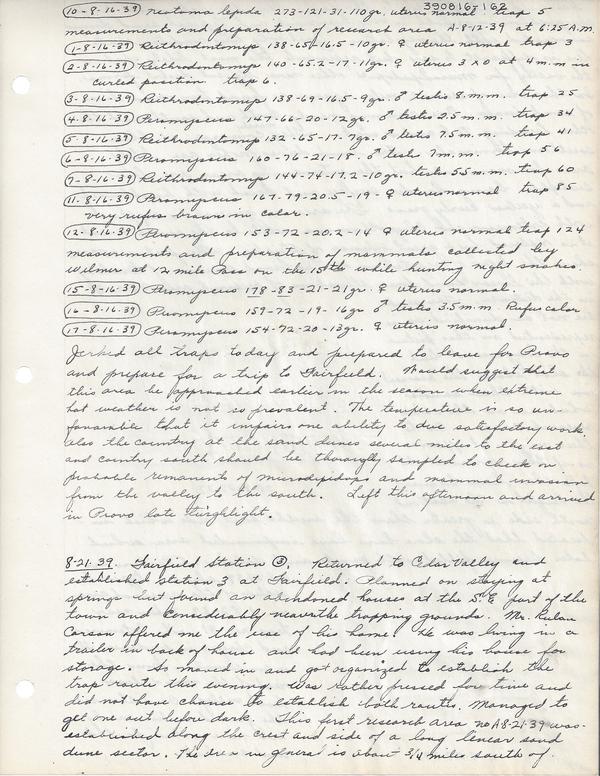 390816-162
(10-8-16-39) neotoma lepida 273-121-31-110gr. uterus normal trap 5
measurements and preparation of research area A-8-12-39 at 6:25 A.M.
(1-8-16-39) Reithrodontomys 138-65-16.5-10gr. ♀ uterus normal trap 3
(2-8-16-39) Reithrodontomys 140-65.2-17-11gr. ♀ uterus 3 x 0 at 4 m.m in
curled position trap 6.
(3-8-16-39) Reithrodontomys 138-69-16.5-9gr. ♂ testis 8.m.m. trap 25
(4-8-16-39) Peromyscus 147-66-20-12gr. ♂ testis 2.5 m.m. trap 34
(5-8-16-39) Reithrodontomys 132-65-17-7gr. ♂ testes 7.5 m.m. trap 41
(6-8-16-39) Peromyscus 160-76-21-18. ♂ testes 7m.m. trap 56
(7-8-16-39) Reithrodontomys 144-74-17.2-10gr. testes 5.5 m.m. trap 60
(11-8-16-39) Peromyscus 167-79-20.5-19- ♀ uterus normal trap 85
very rufus brown in color.
(12-8-16-39) Peromyscus 153-72-20.2-14 ♀ uterus normal trap 124
measurements and preparation of mammals collected by
Wilmer at 12 mile Pass on the 15th while hunting night snakes.
(15-8-16-39) Peromyscus 178-83-21-21gr. ♀ uterus normal.
(16-8-16-39) Peromyscus 159-72-19-16gr ♂ testes 3.5 m.m. Rufus color
(17-8-16-39) Peromyscus 154-72-20-13gr. ♀ uterus normal.
Jerked all traps today and prepared to leave for Provo
and prepare for a trip to Fairfield. Would suggest that
this area be approached earlier in the season when extreme
hot weather is not so prevalent. The temperature is so un-
favorable that it impairs one ability to due satisfactory work.
Also the country at the sand dunes several miles to the east
and country south should be thorougly sampled to check on
probable remanents of microdipidops and mammal invasion
from the valley to the south. Left this afternoon and arrived
in Provo late
8-21-39. Fairfield Station ③. Returned to Cedar Valley and
established station 3 at Fairfield. Planned on staying at
springs but found an abandoned houses at the S.E part of the
town and considerably nearer the trapping grounds. Mr. Rulan
Carson offered me the use of his home. He was living in a
trailer in back of house and had been using his house for
storage. So moved in and got organized to establish the
trap route this evening. Was rather pressed for time and
did not have chance to establish both routes. Managed to
get one out before dark. This first research area no A8-21-39 was
established along the crest and side of a long linear sand
dune sector. The area in general is about 3/4 miles south of